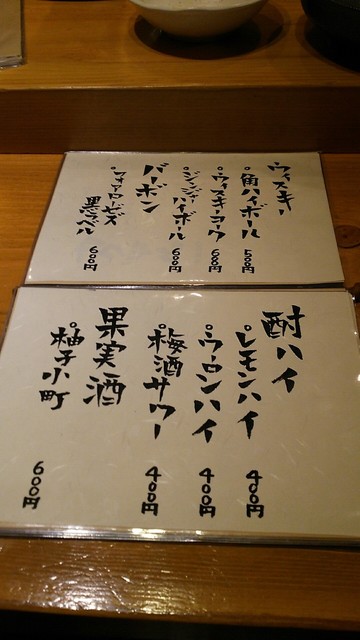 ウィスキー
。角ハイボール 500円
。ウィスキーコーク 600円
。ジンジャーハーボール 600円
バーボン
。フォアローゼズ
黒ラベル 600円
酎ハイ
。レモンハイ 400円
。ウーロンハイ 400円
。梅酒サワー 400円
果実酒
。柚子小町 600円